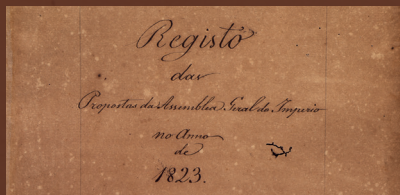 Registo
das
Propostas da Assemblea Geral do Imperio
no Anno
de
1823.